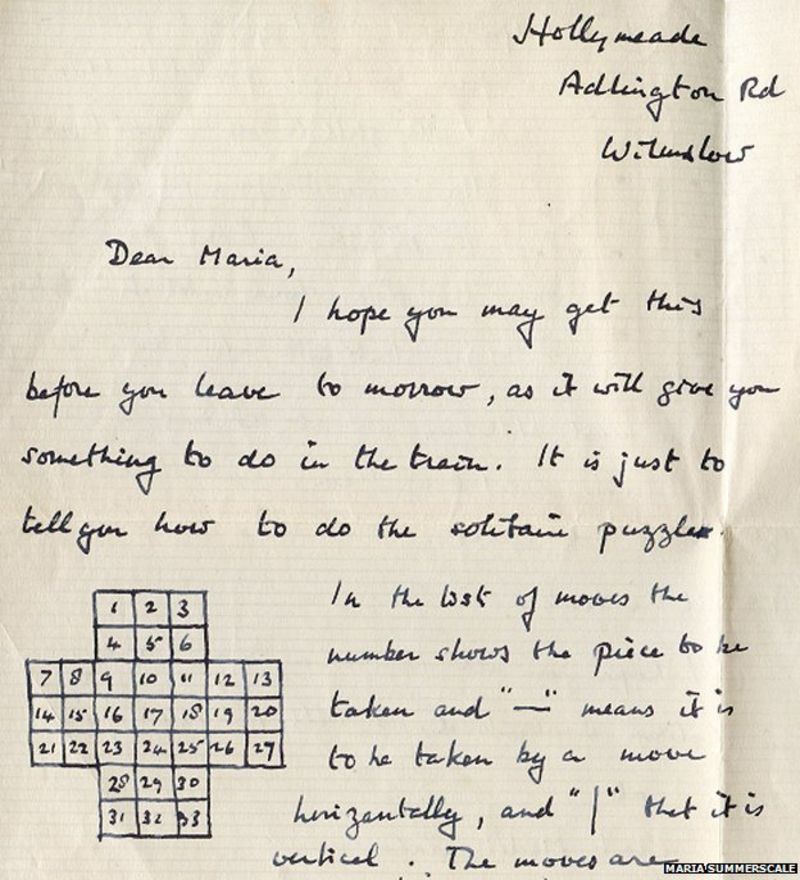 Hollymeade
Adlington Rd
Wilmslow
Dear Maria,
I hope you may get this
before you leave to morrow, as it will give you
something to do in the train. It is just to
tell you how to do the solitaire puzzle.
1 2 3
4 5 6
7 8 9 10 11 12 13
14 15 16 17 18 19 20
21 22 23 24 25 26 27
28 29 30
31 32 33
In the list of moves the
number shows the piece to be
taken and "—" means it is
to be taken by a move
horizontally, and "|" that it is
vertical. The moves are
MARIA SUMMERSCALE